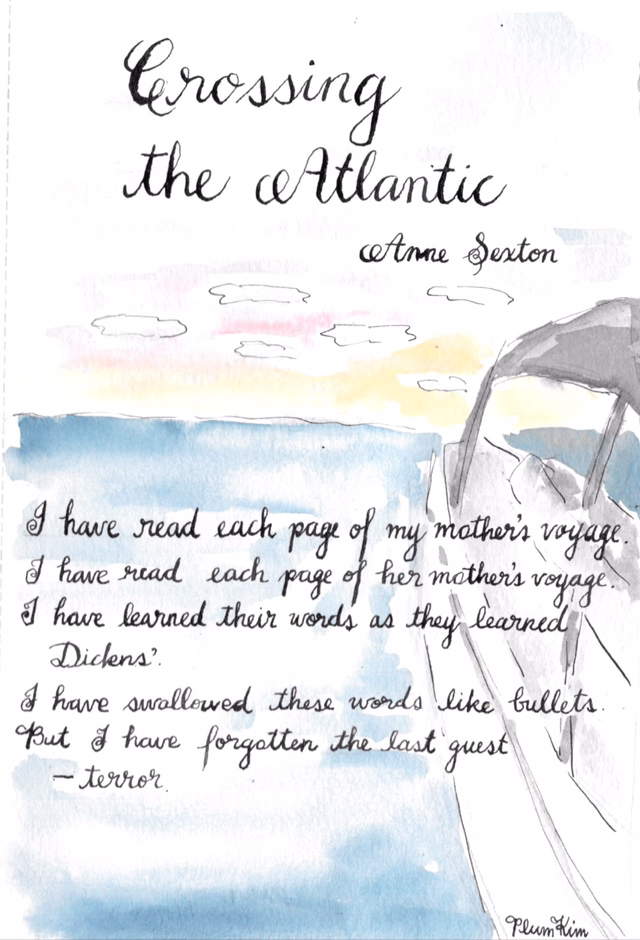 Crossing
the Atlantic
Anne Sexton
I have read each page of my mother's voyage.
I have read each page of her mother's voyage.
I have learned their words as they learned
Dickens'.
I have swallowed these words like bullets.
But I have forgotten the last guest
– terror.
PlumKim